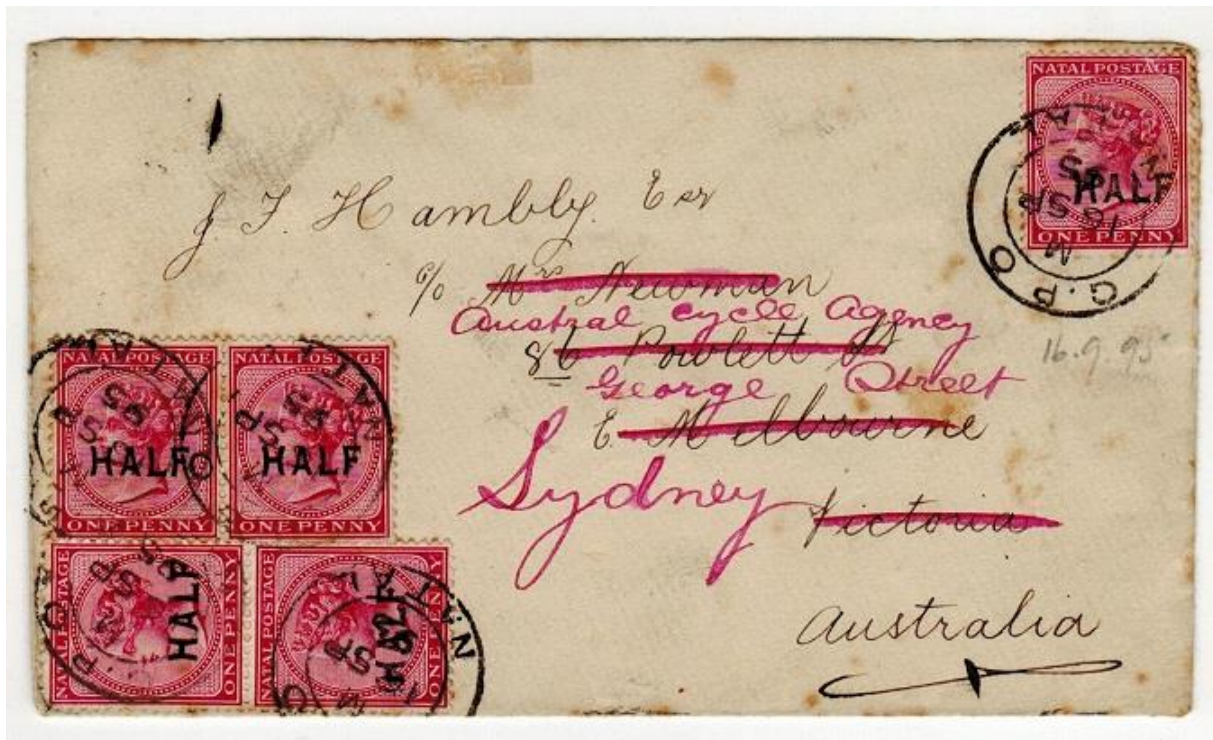 NATAL POSTAGE
HALF
ONE PENNY
G.P.O
NATAL
16 SP
95
J. F. Hambly. Esr
c/o Mrs Newman
Austral Cycle Agency
86 Powlett St
George Street
E. Melbourne
Sydney
Victoria
Australia
16.9.95
NATAL POSTAGE
HALF
ONE PENNY
NATAL POSTAGE
HALF
ONE PENNY
NATAL POSTAGE
HALF
ONE PENNY
NATAL POSTAGE
HALF
ONE PENNY